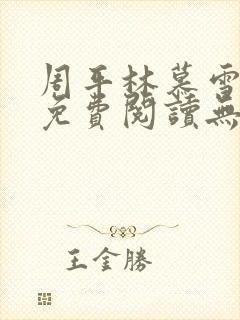 周平林慕雪
免費閱讀無
王金勝